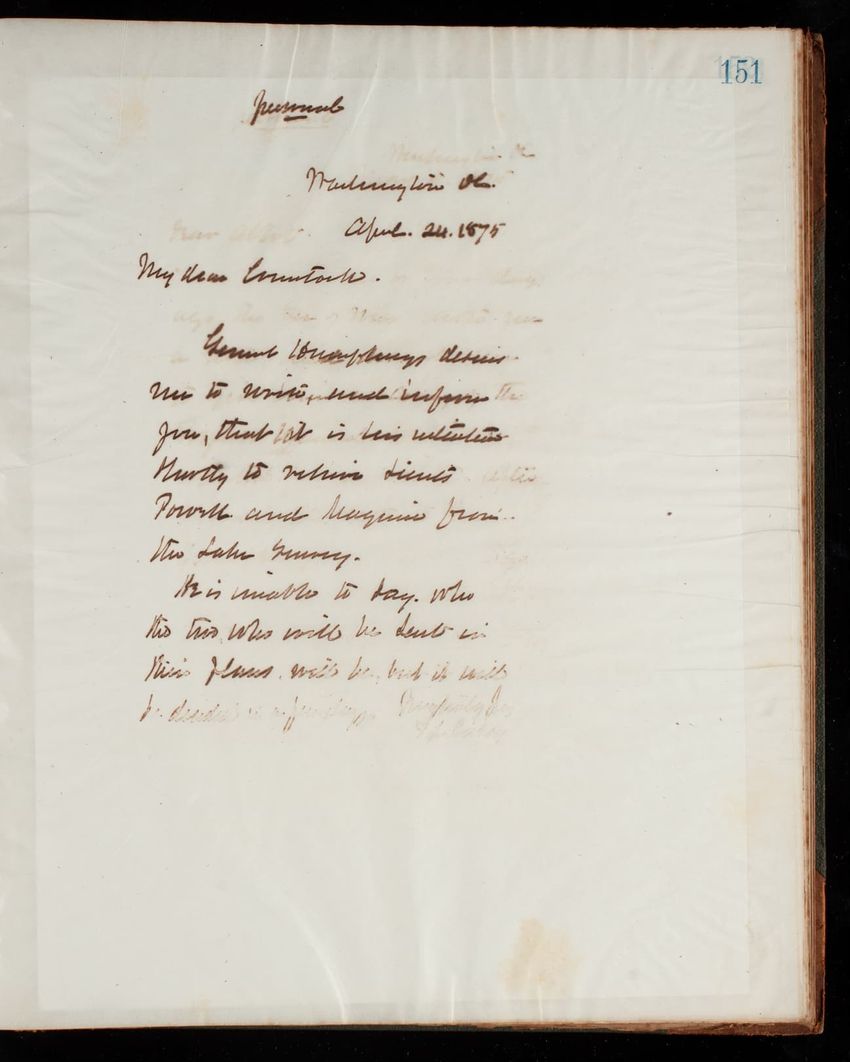 151
Personal
Washington DC.
April. 24. 1875
My dear Comstock.
General Humphreys desires
me to write, and inform
you, that it is his intention
shortly to relieve Lieuts
Powell and Maguire from
the Lake Survey.
He is unable to say. who
the two, who will be sent in
their places. will be, but it will
be decided in a few days. Very truly yrs